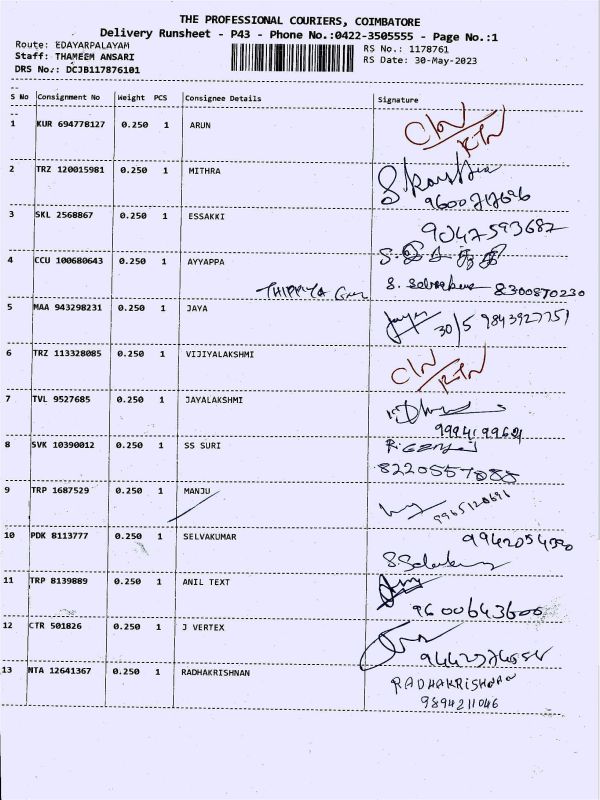 THE PROFESSIONAL COURIERS, COIMBATORE
Delivery Runsheet - P43 - Phone No.:0422-3505555 - Page No.:1
Route: EDAYARPALAYAM
RS No.: 1178761
Staff: THAMEEM ANSARI
RS Date: 30-May-2023
DRS No.: DCJB117876101
S No Consignment No Weight PCS Consignee Details Signature
1 KUR 694778127 0.250 1 ARUN
2 TRZ 120015981 0.250 1 MITHRA
3 SKL 2568867 0.250 1 ESSAKKI 9047593687
4 CCU 100680643 0.250 1 AYYAPPA
8300870230
5 MAA 943298231 0.250 1 JAYA Jaya 30/5 9843927751
6 TRZ 113328085 0.250 1 VIJIYALAKSHMI
7 TVL 9527685 0.250 1 JAYALAKSHMI
8 SVK 10390012 0.250 1 SS SURI
9 TRP 1687529 0.250 1 MANJU
10 PDK 8113777 0.250 1 SELVAKUMAR
11 TRP 8139889 0.250 1 ANIL TEXT
9600643600
12 CTR 501826 0.250 1 J VERTEX
13 NTA 12641367 0.250 1 RADHAKRISHNAN RADHAKRISHNAN
9894211046